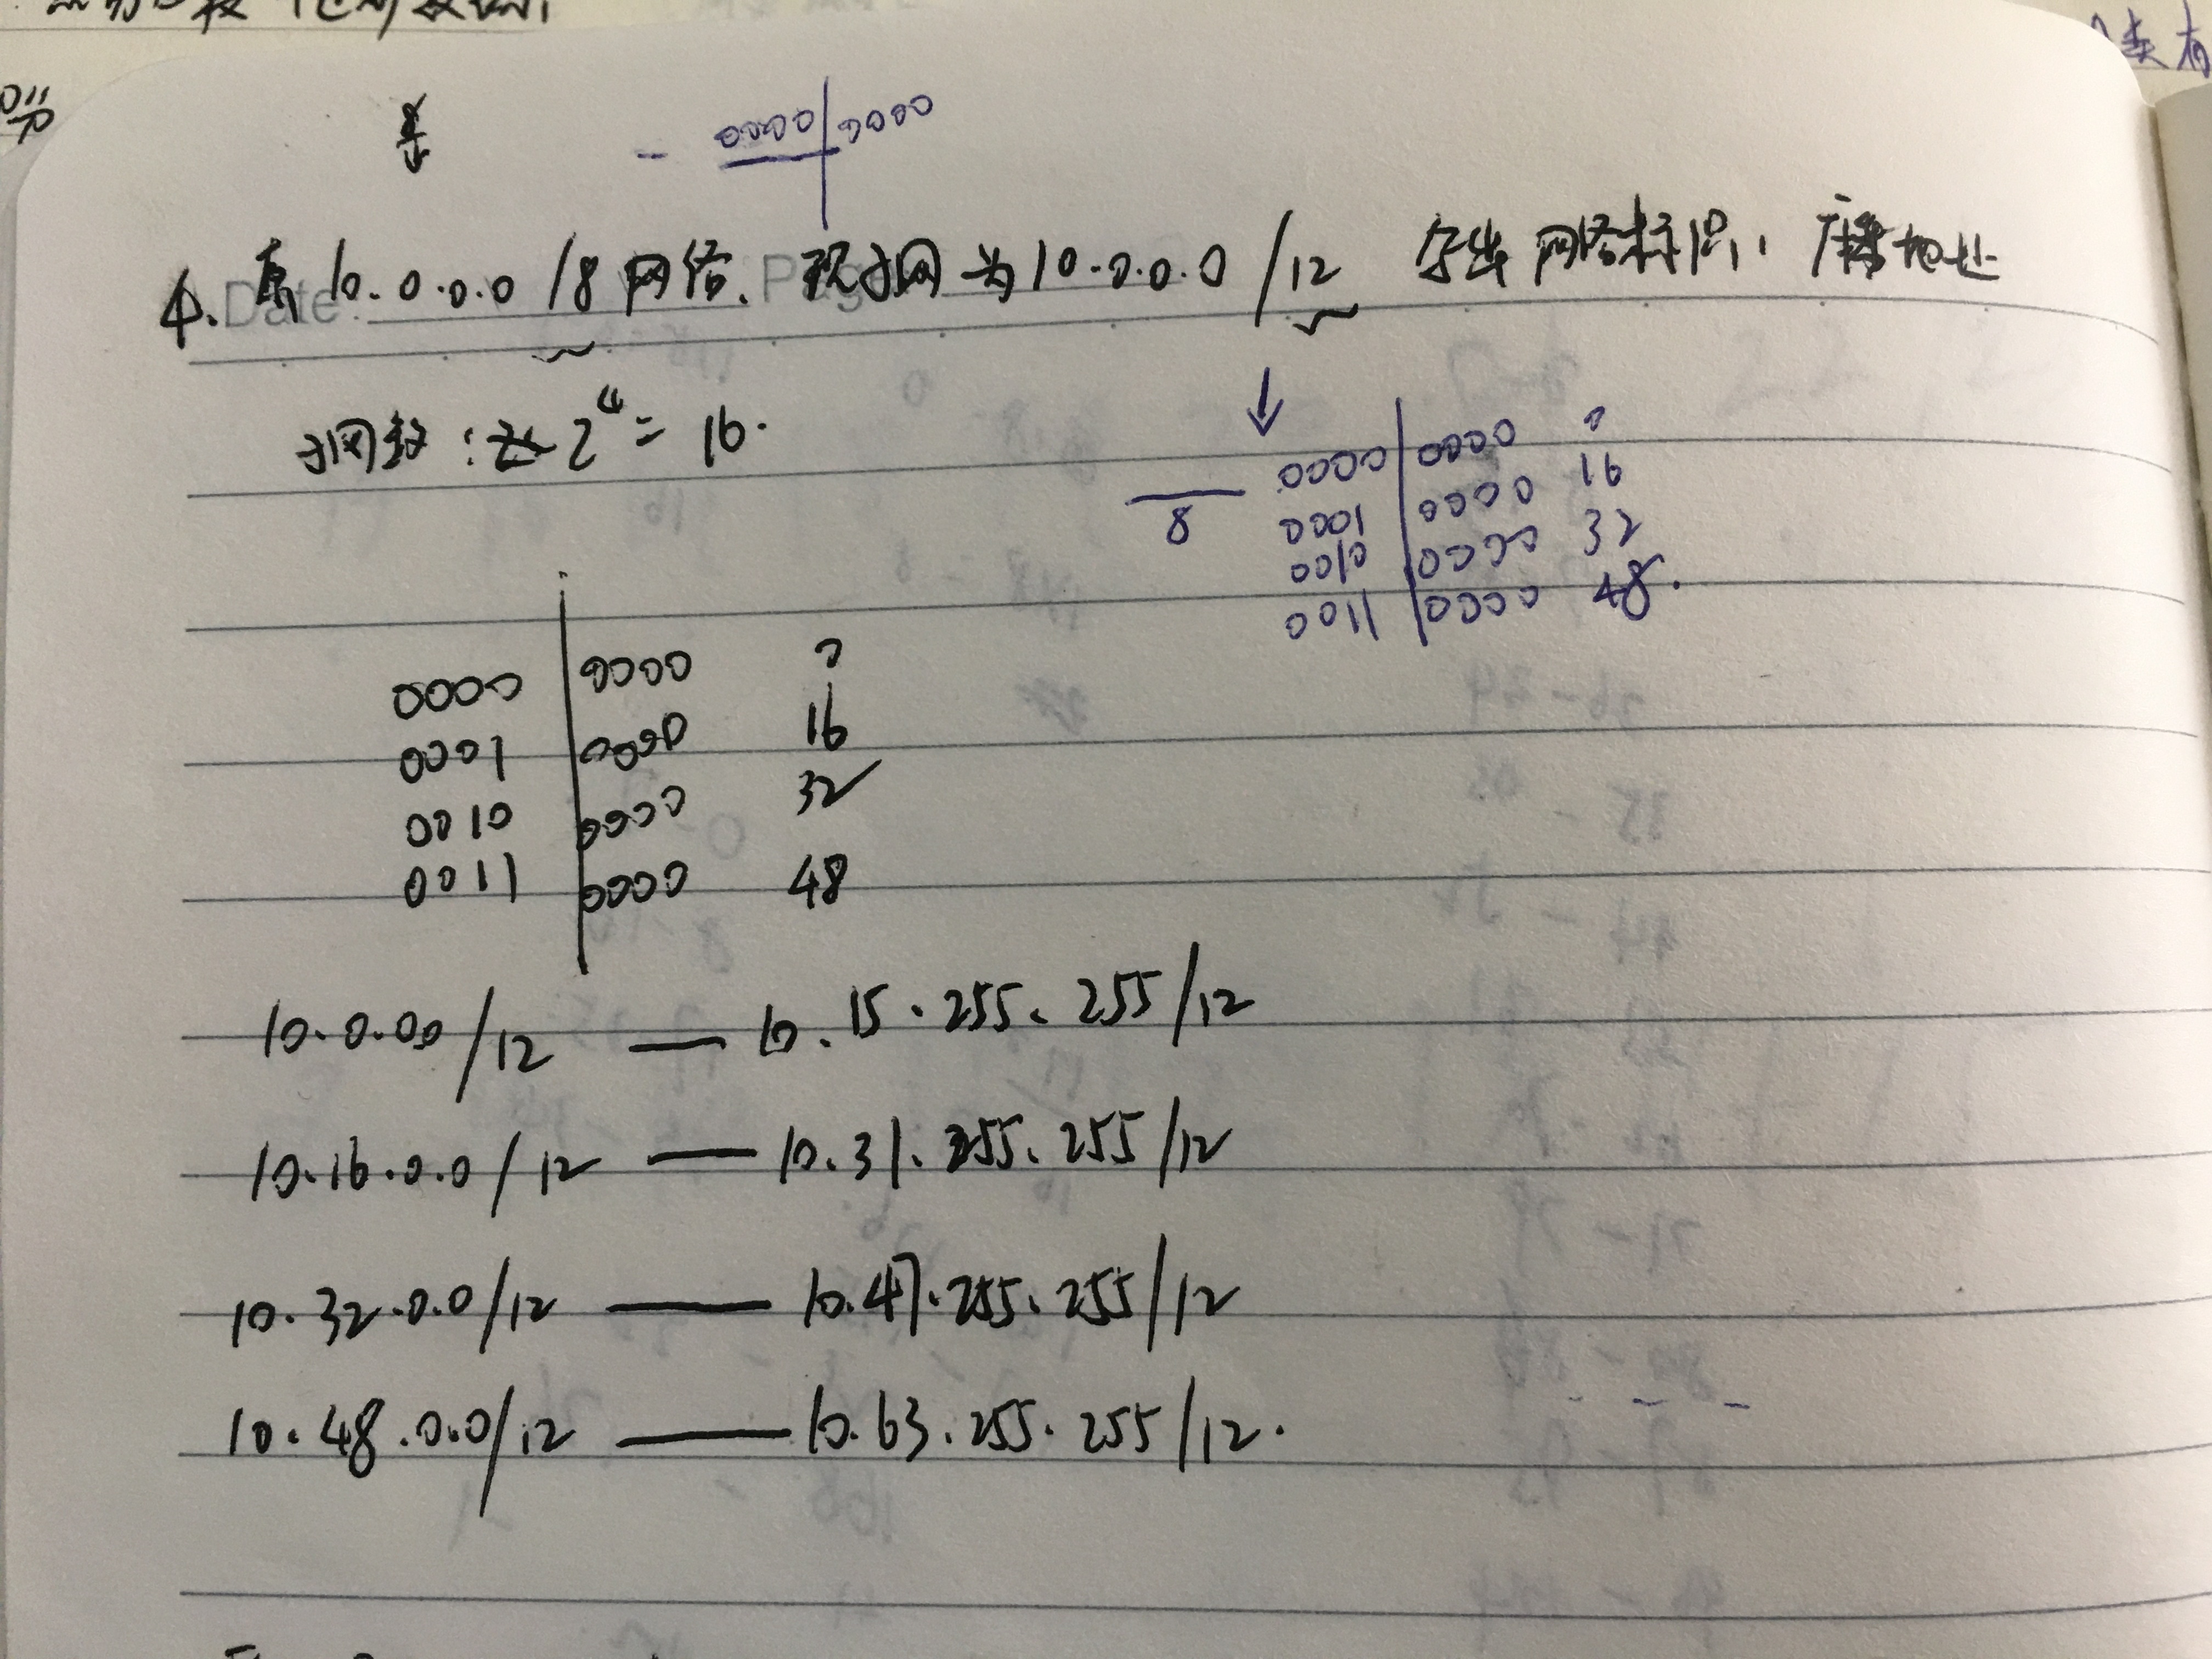 - 0000 | 0000
Date: Page
4. 原 10.0.0.0 /8 网络、现子网为 10.0.0.0 /12 写出 网络标识、广播地址
子网数: 2⁴ = 16.
8
0000 | 0000 0
0001 | 0000 16
0010 | 0000 32
0011 | 0000 48.
0000 | 0000 0
0001 | 0000 16
0010 | 0000 32
0011 | 0000 48
10.0.0.0 /12 — 10.15.255.255/12
10.16.0.0 /12 — 10.31.255.255/12
10.32.0.0/12 — 10.47.255.255/12
10.48.0.0/12 — 10.63.255.255/12.